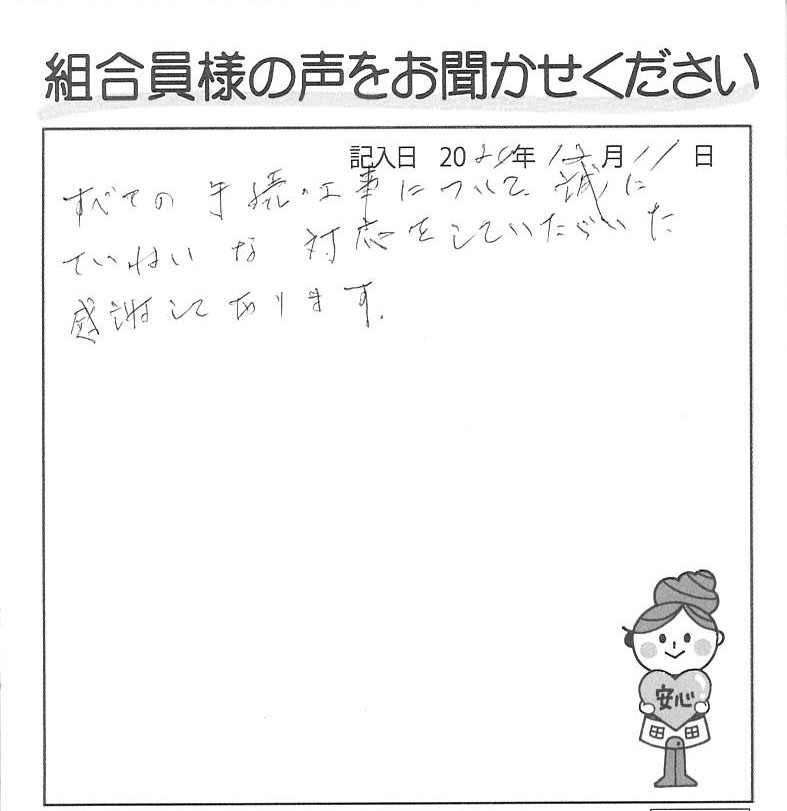 組合員様の声をお聞かせください
記入日 2020年 12月 11日
すべての手続、工事について、誠に
ていねいな対応をしていただいた
感謝しております。
安心